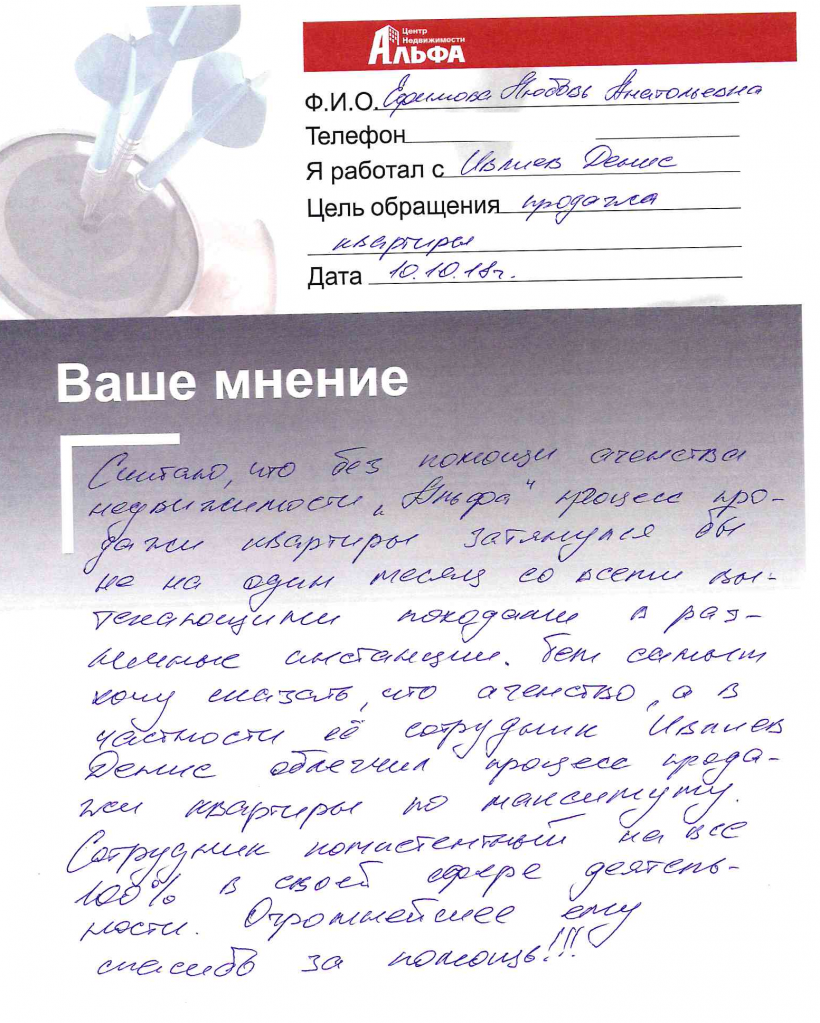 Центр
Недвижимости
АЛЬФА
Ф.И.О. Ефимова Любовь Анатольевна
Телефон
Я работал с Ивлиев Денис
Цель обращения продажа
квартиры
Дата 10.10.18г.
Ваше мнение
Считаю, что без помощи агенства
недвижимости „Альфа" процесс про-
дажи квартиры затянулся бы
не на один месяц со всеми вы-
текающими походами в раз-
личные инстанции. Тем самым
хочу сказать, что агенство, а в
частности её сотрудник Ивлиев
Денис облегчил процесс прода-
жи квартиры по максимуму.
Сотрудник компетентный на все
100% в своей сфере деятель-
ности. Огромнейшее ему
спасибо за помощь!!!